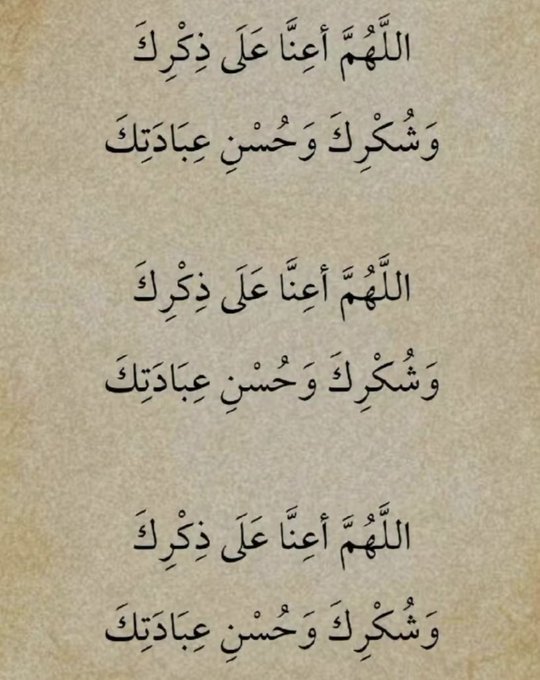 اللَّهُمَّ أعِنَّا عَلَى ذِكْرِكَ
وَشُكْرِكَ وَحُسْنِ عِبَادَتِكَ
اللَّهُمَّ أعِنَّا عَلَى ذِكْرِكَ
وَشُكْرِكَ وَحُسْنِ عِبَادَتِكَ
اللَّهُمَّ أعِنَّا عَلَى ذِكْرِكَ
وَشُكْرِكَ وَحُسْنِ عِبَادَتِكَ